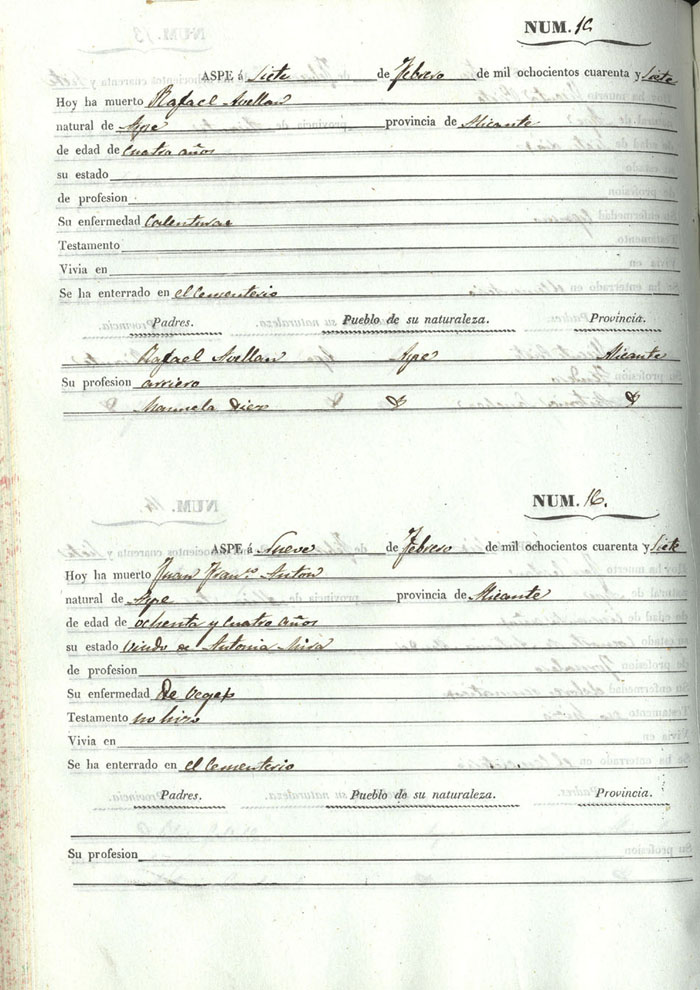 NUM. 15
ASPE á Siete de Febrero de mil ochocientos cuarenta y Siete
Hoy ha muerto Rafael Avellan
natural de Aspe provincia de Alicante
de edad de Cuatro años
su estado
de profesion
Su enfermedad Calenturas
Testamento
Vivia en
Se ha enterrado en el Cementerio
Padres. Pueblo de su naturaleza. Provincia.
Rafael Avellan Aspe Alicante
Su profesion arriero
Manuela Diez
NUM. 16.
ASPE á Nueve de Febrero de mil ochocientos cuarenta y Siete
Hoy ha muerto Juan Fran.co Anton
natural de Aspe provincia de Alicante
de edad de ochenta y cuatro años
su estado viudo de Antonia Mira
de profesion
Su enfermedad De vegez
Testamento no hizo
Vivia en
Se ha enterrado en el Cementerio
Padres. Pueblo de su naturaleza. Provincia.
Su profesion